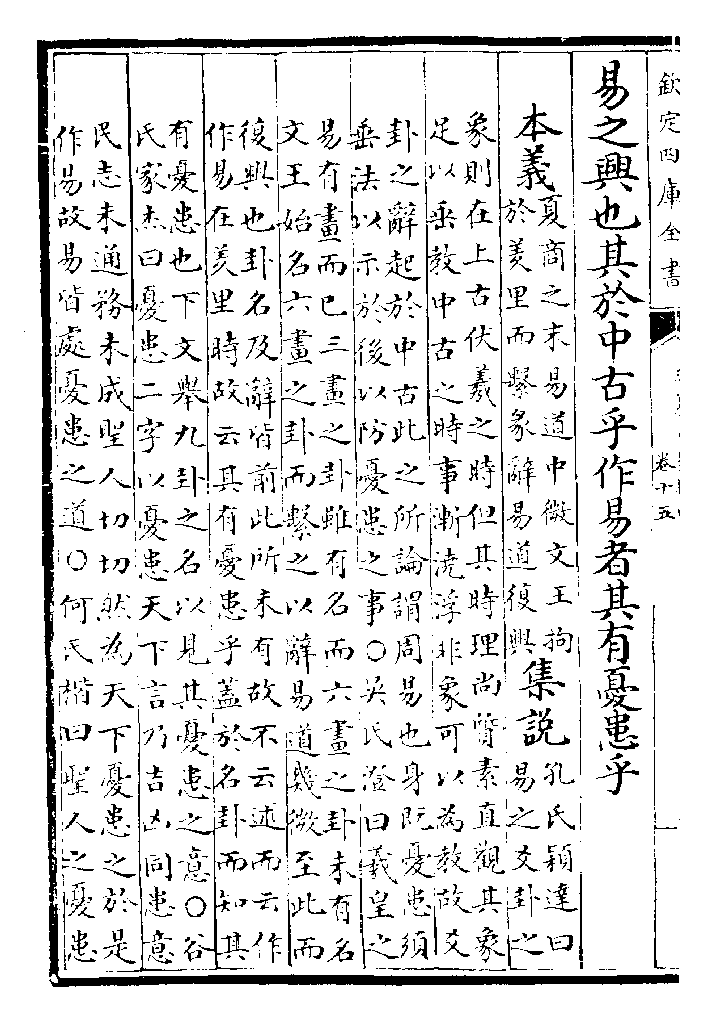 欽定四庫全書
卷十五
易之興也其於中古乎作易者其有憂患乎
本義夏商之末易道中微文王拘
於羑里而繫彖辭易道復興集説孔氏穎達曰
易之爻卦之
象則在上古伏羲之時但其時理尚質素直觀其象
足以垂教中古之時事漸澆浮非象可以為教故爻
卦之辭起於中古此之所論謂周易也身既憂患須
垂法以示於後以防憂患之事○吳氏澄曰羲皇之
易有畫而已三畫之卦雖有名而六畫之卦未有名
文王始名六畫之卦而繫之以辭易道幾微至此而
復興也卦名及辭皆前此所未有故不云述而云作
作易在羑里時故云其有憂患乎蓋於名卦而知其
有憂患也下文舉九卦之名以見其憂患之意○谷
氏家杰曰憂患二字以憂患天下言乃吉凶同患意
民志未通務未成聖人切切然為天下憂患之於是
作易故易皆處憂患之道○何氏楷曰聖人之憂患